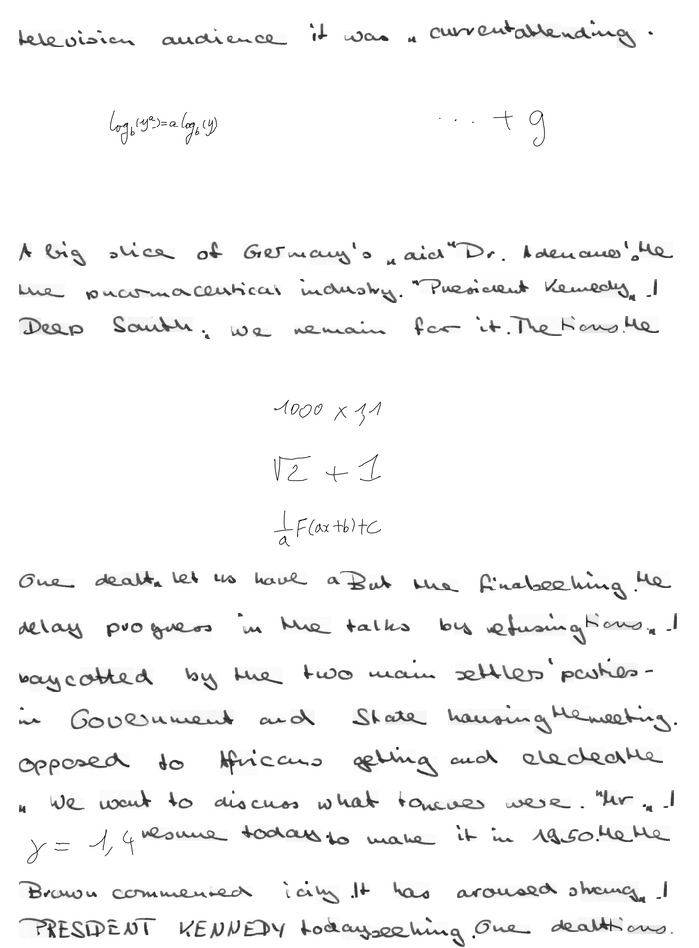 television audience it was „ currentattending .
log_b(y^a)=a log_b(y) ... + g
A big slice of Germany's „ aid "Dr. Adenauer'. He
the pharmaceutical industry. "President Kennedy „ I
Deep South . we remain for it. The tions. He
1000 x 1,1
√2 + 1
1/a F(ax+b)+C
One dealt „ let us have a But the finabeeking. He
delay progress in the talks by refusing tions. „ I
boycotted by the two main settlers' parties -
in Government and State housing the meeting.
opposed to Africans getting and elected He
„ We want to discuss what were . "Mr . „ I
γ = 1,4 resume today to make it in 1950. He He
Brown commented icily . It has aroused strong „ I
PRESIDENT KENNEDY today seeking . One dealt tions.